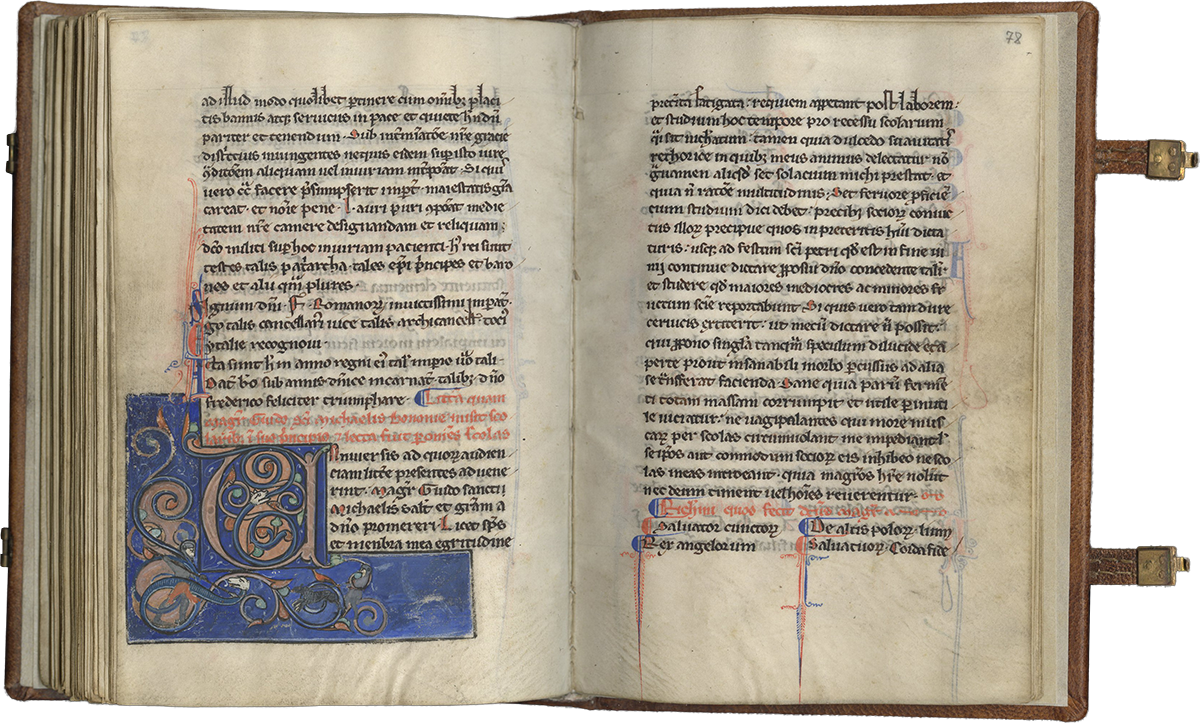 ad illud modo quolibet ptinere cum omibꝫ placi
tis bannis atqꝫ seruiciis in pace et quiete hñdũ
pariter et tenendum. Sub inẽmatõe nr̃e gracie
districtius iniungentes nequis eidem sup isto iure
ꝯditõem aliquam uel iniuriam inferat. Si qui
uero facere psumpserit impat maiestatis gr̃a
careat. et noĩe pene. l. auri puri ꝯponat medie
tatem nr̃e camere designandam et reliquam
dc̃o militi sup hoc iniuriam pacienti. h rei sunt
testes talis pat̃archa tales epĩ pꝛincipes et baro
nes et alii qm̃ plures.
Signum dñi. F. Romanorꝫ inuictissimi impat.
Ego talis cancellari uice talis archicancell. tocius
ytalie recognoui
Acta sunt h in anno regni ei tal impio uo tali
Dat ho sub annis dnice incarnat talibꝫ dño
frederico feliciter triumphare. Littera quam
magr̃. Guido scĩ michaelis bononie misit sco
larib i suo pꝛincipio ⁊ lecta fuit p omes scolas
Uniuersis ad quorꝫ audien
ciam litt̃e presentes aduene
rint. Magr̃ Guido sancti
michaelis salt et gram a
dño promereri. Licet sps
et menbra mea egritudine
78
precedenti fatigata. requiem appetant post laborem
et studium hoc tempore pro recessu scolarum
qui sit uichatum. tamen quia dulcedo suauitatis
rethorice in quibꝫ meus animus delectatur nõ
grauamen aliqd set solacium michi prestat. et
quia ñ ratõe multitudinis. Set feruore pficien
cium studium dici debet. precibꝫ sociorꝫ conuic
tus illorꝫ precipue quos in preteritis hui dicta
turis. usqꝫ ad festum scĩ petri qd est in fine iu
nii continue dictare ꝓposui dño concedente talit
et studere qd maiores mediocres ac minores fr
uctum sciẽ reportabunt. Si quis uero tam dure
ceruicis extiterit. ut mecũ dictare ñ possit.
qui ꝓpono singla tanqm speculum dilucide et a
perte prout insanabili morbo pcussus ad alia
se trãsferat facienda. Sane quia parũ ferme
ti totam massam corrumpit et utile p inuti
le uiciatur. ne uagipalantes qui more mus
carꝫ per scolas circumuolant me impediant l
se ipõs aut commodum sociorꝫ eis inhibeo ne sco
las meas introeant. quia magros hre nolũt
nec deum timent uel hoies reuerentur.
Richimi quos fecit
Saluator cunctorꝫ
De altis polorꝫ
Rex angelorum
Saluatuorꝫ Corda fide